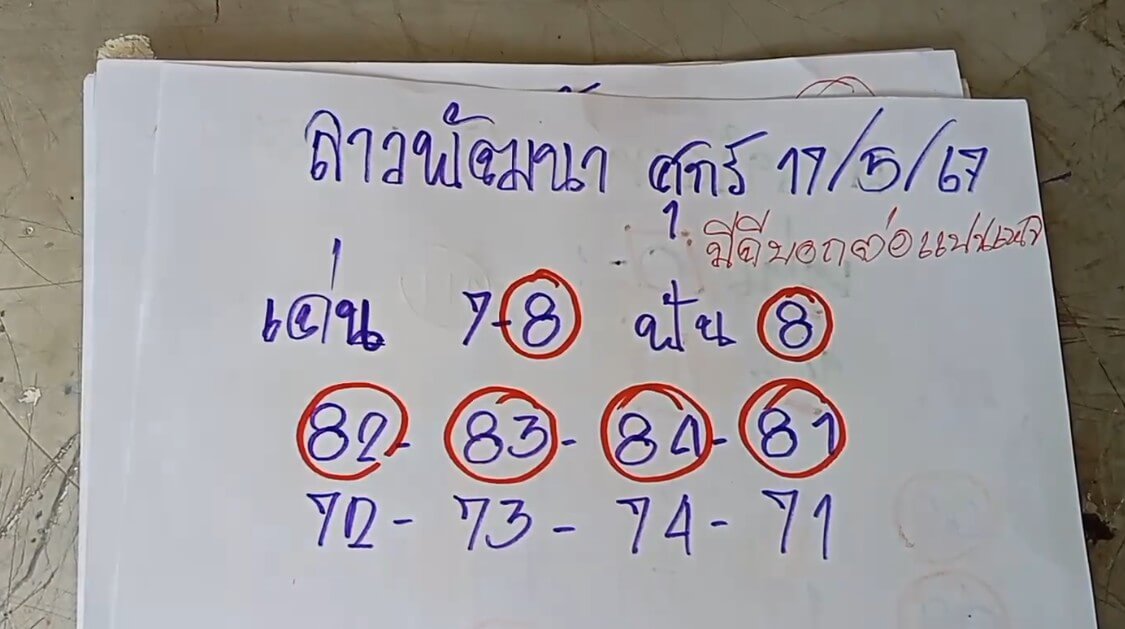 ลาวพัฒนา ศุกร์ 17/5/67
มีดีบอกต่อแม่นแล้ว
เด่น 7-8 ฟัน 8
82- 83- 84- 81
72- 73- 74- 71